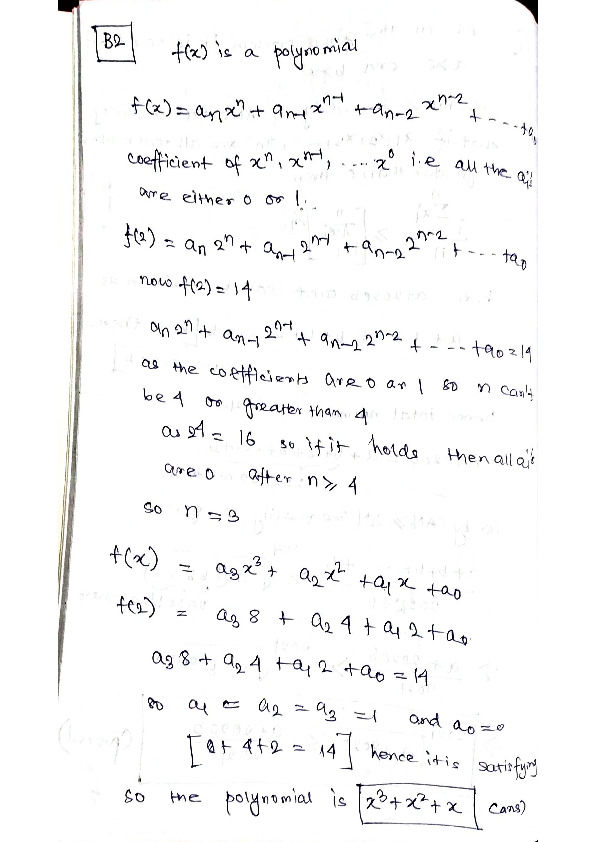 B2
f(x) is a polynomial
f(x) = aₙxⁿ + aₙ₋₁xⁿ⁻¹ + aₙ₋₂xⁿ⁻² + - - - + a₀
coefficient of xⁿ, xⁿ⁻¹, .... x⁰ i.e all the aᵢ's
are either 0 or 1.
f(2) = aₙ2ⁿ + aₙ₋₁2ⁿ⁻¹ + aₙ₋₂2ⁿ⁻² + - - - + a₀
now f(2) = 14
aₙ2ⁿ + aₙ₋₁2ⁿ⁻¹ + aₙ₋₂2ⁿ⁻² + - - - + a₀ = 14
as the coefficients are 0 or 1 so n can't
be 4 or greater than 4
as 2⁴ = 16 so if it holds then all aᵢ's
are 0 after n ≥ 4
so n = 3
f(x) = a₃x³ + a₂x² + a₁x + a₀
f(2) = a₃8 + a₂4 + a₁2 + a₀
a₃8 + a₂4 + a₁2 + a₀ = 14
so a₁ = a₂ = a₃ = 1 and a₀ = 0
[8 + 4 + 2 = 14] hence it is satisfying
so the polynomial is x³ + x² + x (ans)